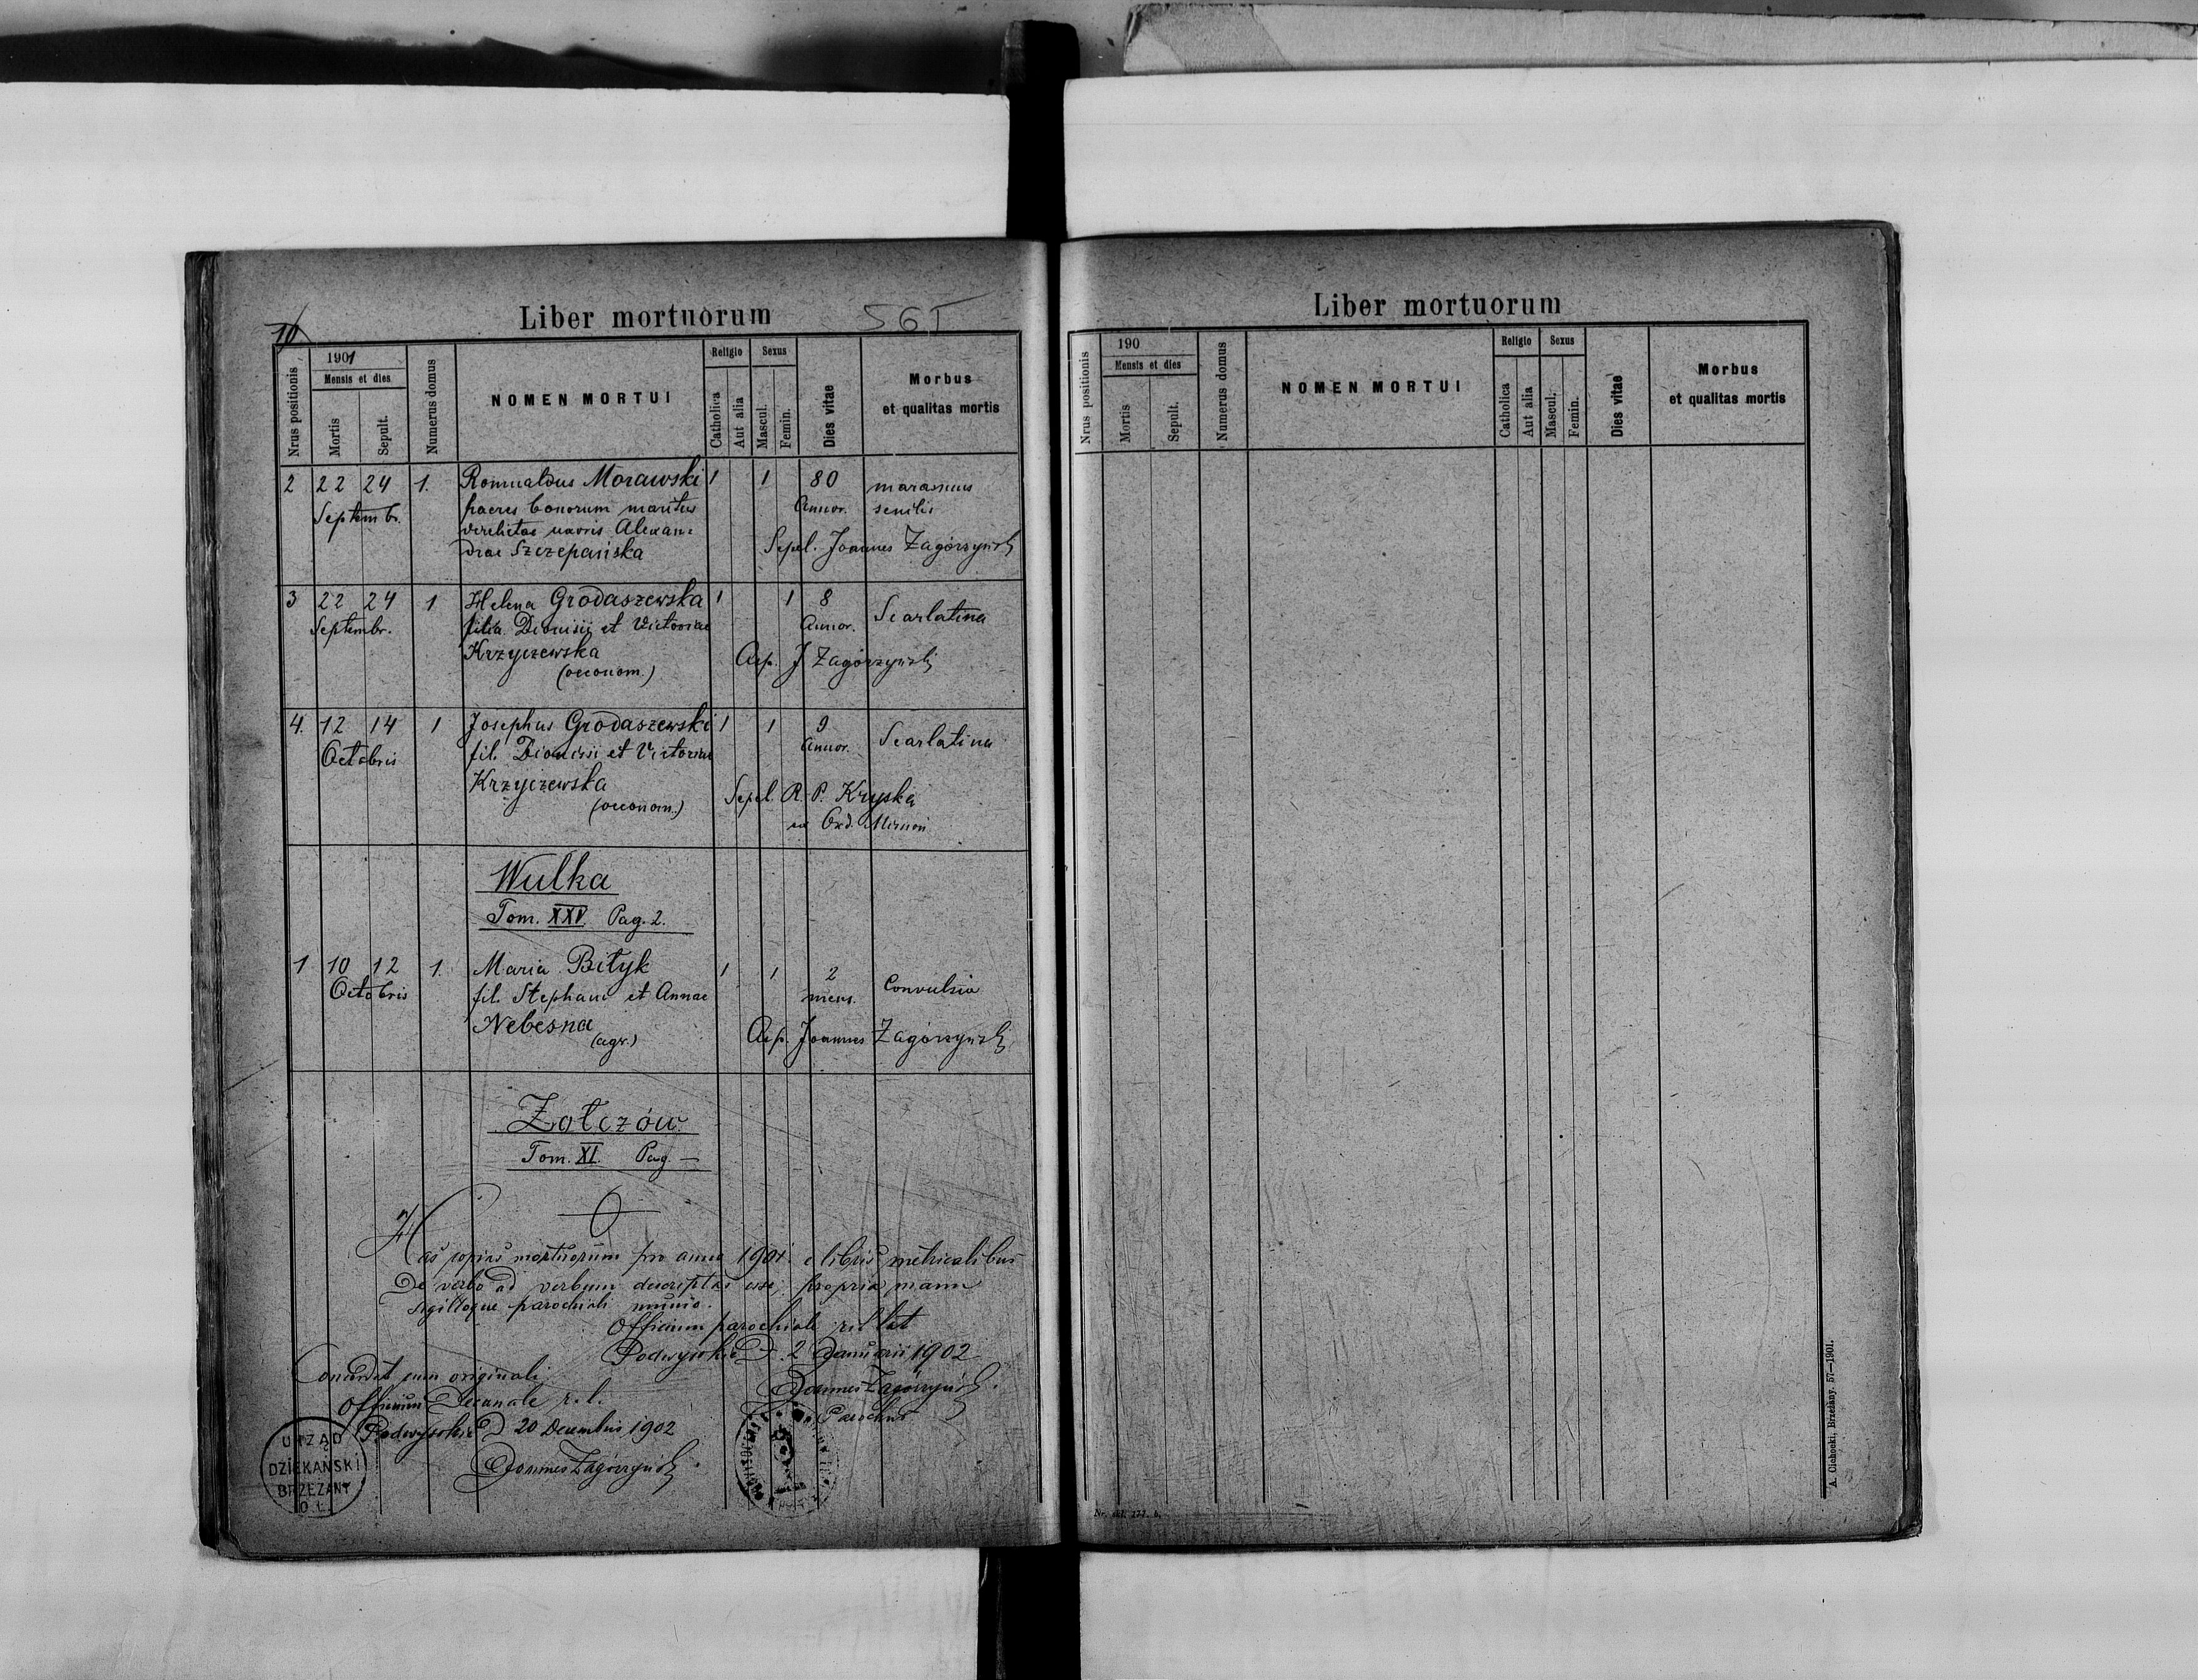 10
Liber mortuorum
561
Nrus positionis
1901
Mensis et dies
Mortis
Sepult.
Numerus domus
NOMEN MORTUI
Religio
Catholica
Aut alia
Sexus
Mascul.
Femin.
Dies vitae
Morbus
et qualitas mortis
2 22 24 1. Romualdus Morawski 1 1 80 marasmus
Septembr. haeres bonorum maritus Annor. senilis
derelictae uxoris Alexan-
drae Szczepańska Sepel. Joannes Zagórzyński
3 22 24 1 Helena Grodaszewska 1 1 8 Scarlatina
Septembr. filia Dionisii et Victoriae Annor.
Krzyczewska
(oeconom.) J Zagórzyński
4. 12 14 1 Josephus Grodaszewski 1 1 9 Scarlatina
Octobris fil. Dionisii et Victoriae Annor.
Krzyczewska Sepel. R. P. Kryska
(oeconom.) ex Ord. Minori
Wulka
Tom. XXV. Pag. 2.
1 10 12 1. Maria Bityk 1 1 2 Convulsio
Octobris fil. Stephani et Annae mens.
Nebesna
(agr.) Joannes Zagórzyński
Żołczów
Tom. XI. Pag. —
Has copias mortuorum pro anno 1901 e libris metricalibus
De verbo ad verbum descriptas esse, propria manu
sigilloque parochiali munio.
Officium parochiale rit lat
Podwysokie D. 2 Januarii 1902
Joannes Zagórzyński
Parochus
Concordat cum originali
Officium Decanale r. l.
Podwysokie D 20 Decembris 1902
Joannes Zagórzyński
URZĄD
DZIEKAŃSKI
BRZEŻANY
O. Ł.
Liber mortuorum
Nrus positionis
190
Mensis et dies
Mortis
Sepult.
Numerus domus
NOMEN MORTUI
Religio
Catholica
Aut alia
Sexus
Mascul.
Femin.
Dies vitae
Morbus
et qualitas mortis
A. Cichocki, Brzeżany. 57—1901.